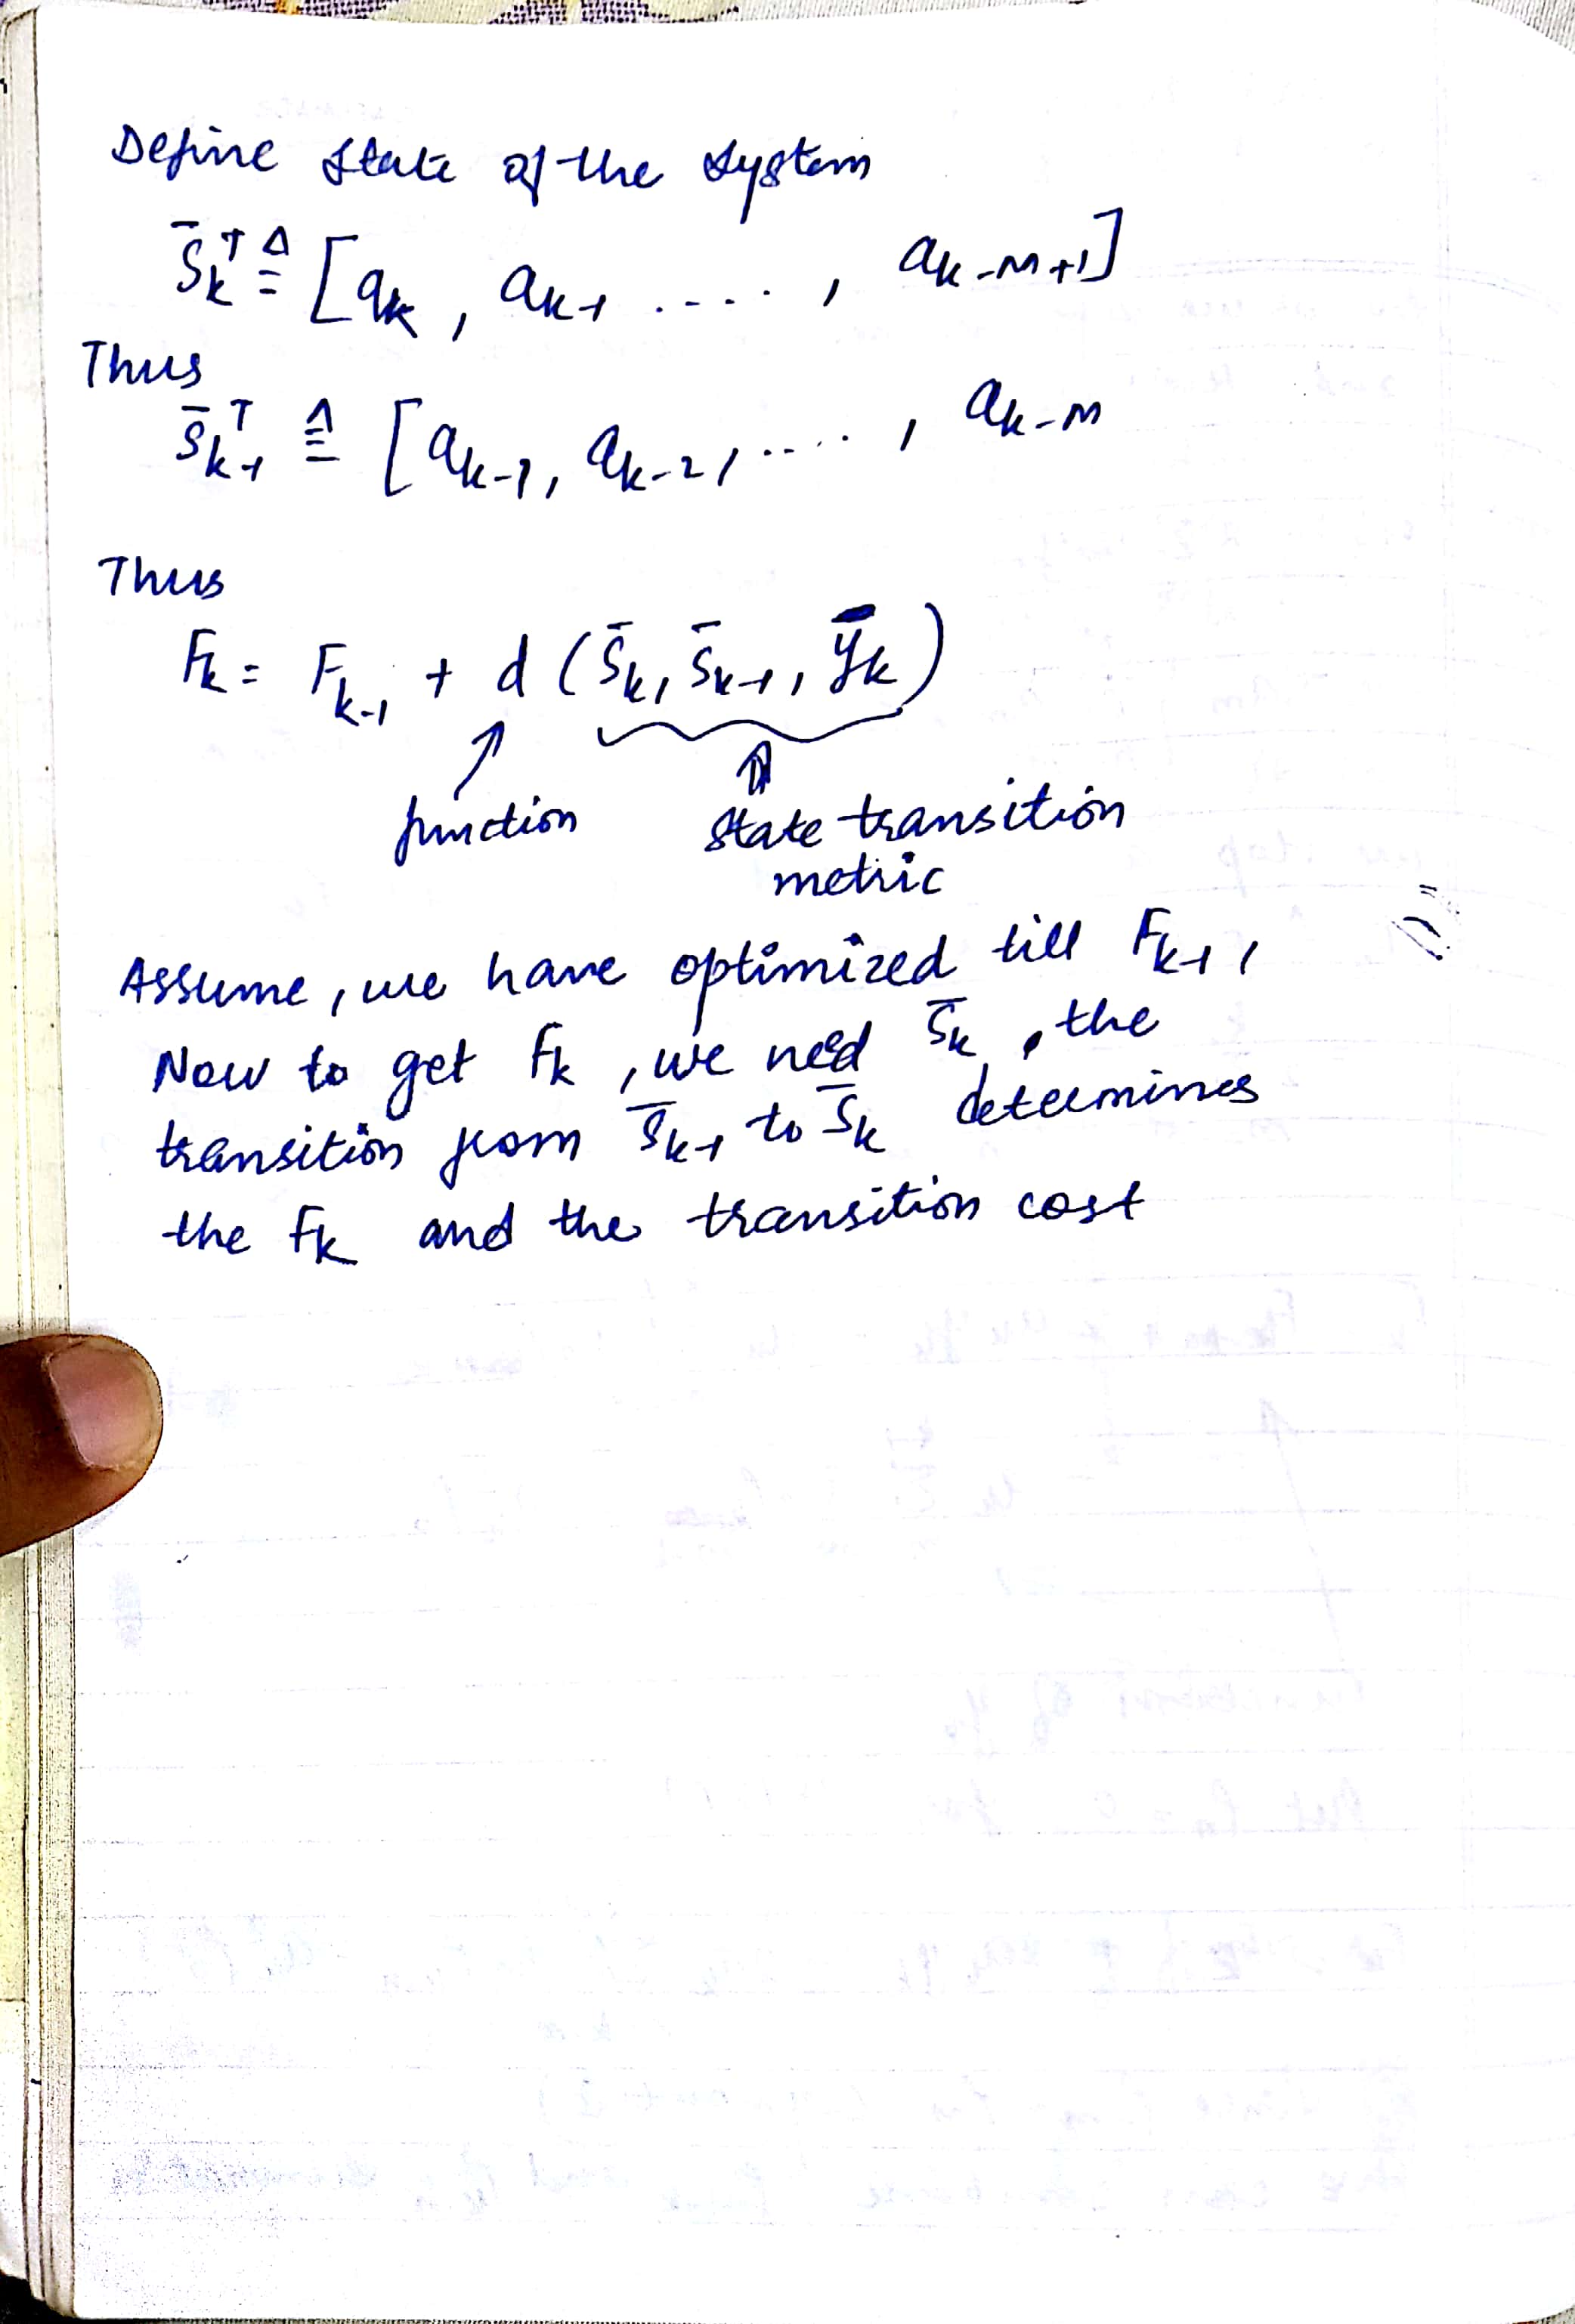 Define State of the System
S̄ₖᵀ ≜ [aₖ, aₖ₋₁ ...., aₖ₋ₘ₊₁]
Thus
S̄ₖ₋₁ᵀ ≜ [aₖ₋₁, aₖ₋₂, ....., aₖ₋ₘ
Thus
Fₖ = Fₖ₋₁ + d (S̄ₖ, S̄ₖ₋₁, ȳₖ)
function State transition
metric
Assume, we have optimized till Fₖ₋₁,
Now to get Fₖ, we need S̄ₖ, the
transition from S̄ₖ₋₁ to S̄ₖ determines
the Fₖ and the transition cost